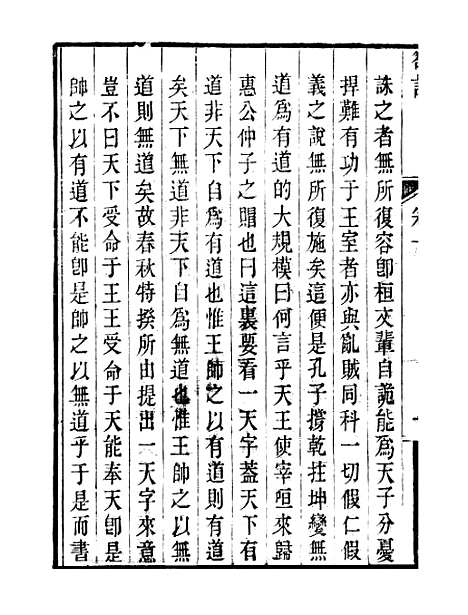 誅之者無所復容卽桓文輩自詭能爲天子分憂
捍難有功于王室者亦與亂賊同科一切假仁假
義之說無所復施矣這便是孔子撐乾拄坤變無
道爲有道的大規模曰何言乎天王使宰咺來歸
惠公仲子之賵也曰這裏要看一天字葢天下有
道非天下自爲有道也惟王帥之以有道則有道
矣天下無道非天下自爲無道也惟王帥之以無
道則無道矣故春秋特揆所由提出一天字來意
豈不曰天下受命于王王受命于天能奉天卽是
帥之以有道不能卽是帥之以無道乎于是而書